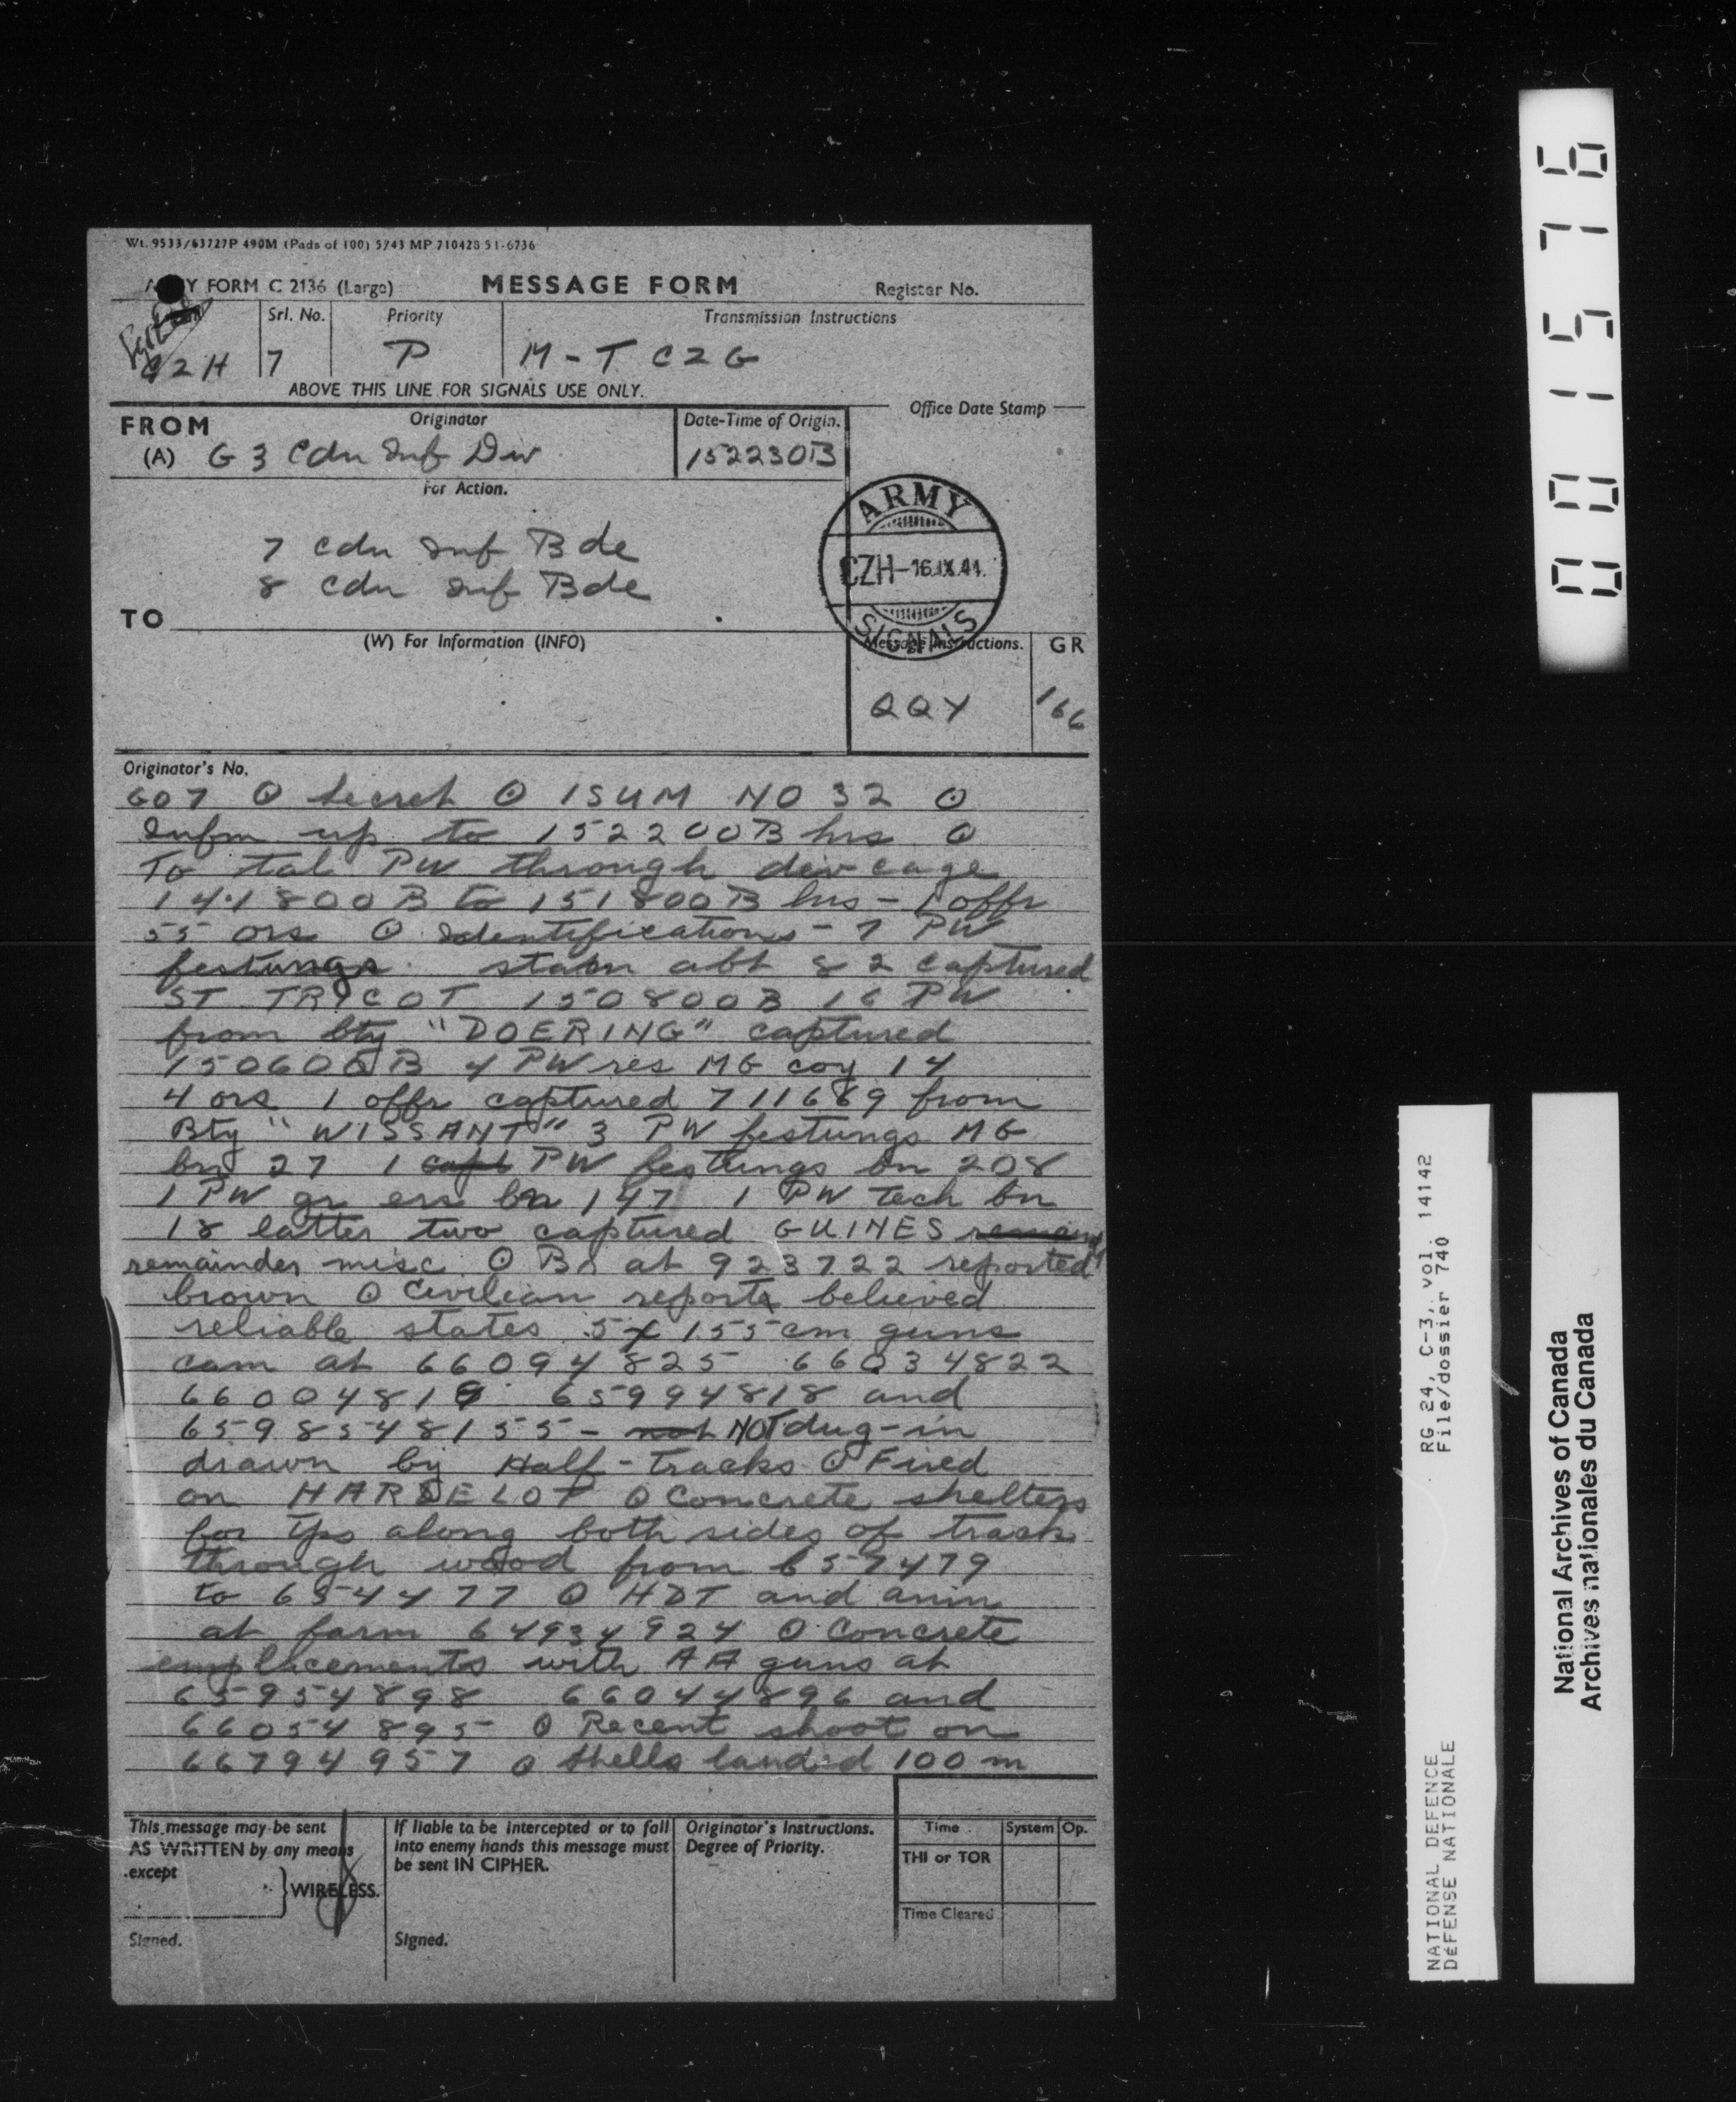 Wt. 9533/63727P 490M (Pads of 100) 5/43 MP 710428 51-6736
FORM C 2136 (Large) MESSAGE FORM Register No.
Srl. No. Priority Transmission Instructions
C2H 7 P M-T C2G
ABOVE THIS LINE FOR SIGNALS USE ONLY.
FROM Originator Date-Time of Origin. Office Date Stamp
(A) G 3 Cdn Inf Div 152230B
For Action.
7 Cdn Inf Bde
8 Cdn Inf Bde
TO
ARMY
CZH-16.IX.44.
SIGNALS
(W) For Information (INFO) Message Instructions. GR
QQY 166
Originator's No.
G07 ⊙ Secret ⊙ ISUM NO 32 ⊙
Infm up to 152200B hrs ⊙
To tal PW through div cage
141800B to 151800B hrs - 1 offr
55 ors ⊙ Identifications - 7 PW
festungs stamm abt 82 captured
ST TRICOT 150800B 16 PW
from bty "DOERING" captured
150600B 4 PW res MG coy 14
4 ors 1 offr captured 711669 from
Bty "WISSANT" 3 PW festungs MG
bn 27 1 capt PW festungs bn 208
1 PW gr ers bn 147 1 PW tech bn
18 latter two captured GUINES
remainder misc ⊙ Br at 923722 reported
brown ⊙ Civilian reports believed
reliable states 5 x 155 cm guns
cam at 66094825 66034822
66004819 65994818 and
6598548155 - not NOT dug-in
drawn by Half-tracks ⊙ Fired
on HARDELOT ⊙ Concrete shelters
for tps along both sides of track
through wood from 657479
to 654477 ⊙ HDT and amn
at farm 64934924 ⊙ Concrete
emplacements with AA guns at
65954898 66044896 and
66054895 ⊙ Recent shoot on
66794957 ⊙ Shells landed 100 m
This message may be sent
AS WRITTEN by any means
except
WIRELESS.
Signed.
If liable to be intercepted or to fall
into enemy hands this message must
be sent IN CIPHER.
Signed.
Originator's Instructions.
Degree of Priority.
Time System Op.
THI or TOR
Time Cleared
001576
RG 24, C-3, vol. 14142
File/dossier 740
NATIONAL DEFENCE
DÉFENSE NATIONALE
National Archives of Canada
Archives nationales du Canada